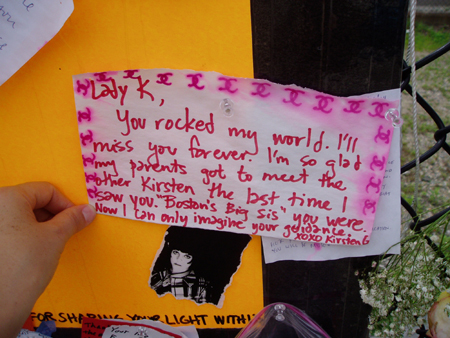 Lady K,
You rocked my world. I'll
miss you forever. I'm so glad
my parents got to meet the
other Kirsten the last time I
saw you. "Boston's Big Sis" you were.
Now I can only imagine your guidance.
XOXO Kirsten G
FOR SHARING YOUR LIGHT WITH